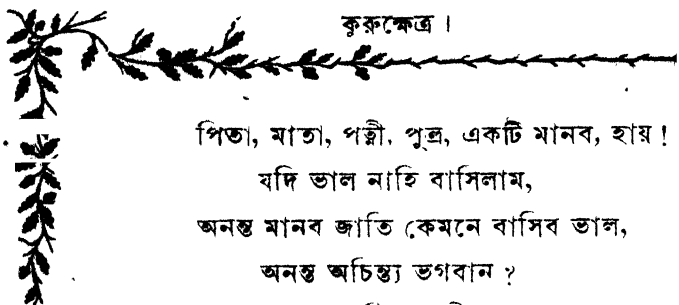 কুরুক্ষেত্র ।
পিতা, মাতা, পত্নী, পুত্র, একটি মানব, হায় !
যদি ভাল নাহি বাসিলাম,
অনন্ত মানব জাতি কেমনে বাসিব ভাল,
অনন্ত অচিন্ত্য ভগবান ?